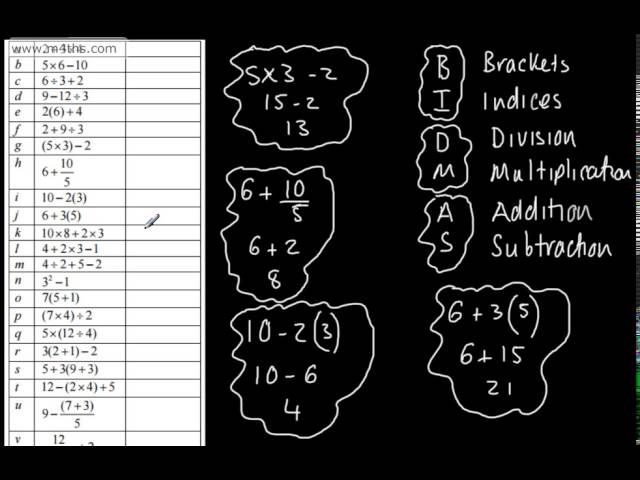 www.m4ths.com
b 5×6−10
c 6÷3+2
d 9−12÷3
e 2(6)+4
f 2+9÷3
g (5×3)−2
h 6+10/5
i 10−2(3)
j 6+3(5)
k 10×8+2×3
l 4+2×3−1
m 4÷2+5−2
n 3²−1
o 7(5+1)
p (7×4)÷2
q 5×(12÷4)
r 3(2+1)−2
s 5+3(9+3)
t 12−(2×4)+5
u 9−(7+3)/5
v 12
5×3−2
15−2
13
6+10/5
6+2
8
10−2(3)
10−6
4
B Brackets
I Indices
D Division
M Multiplication
A Addition
S Subtraction
6+3(5)
6+15
21